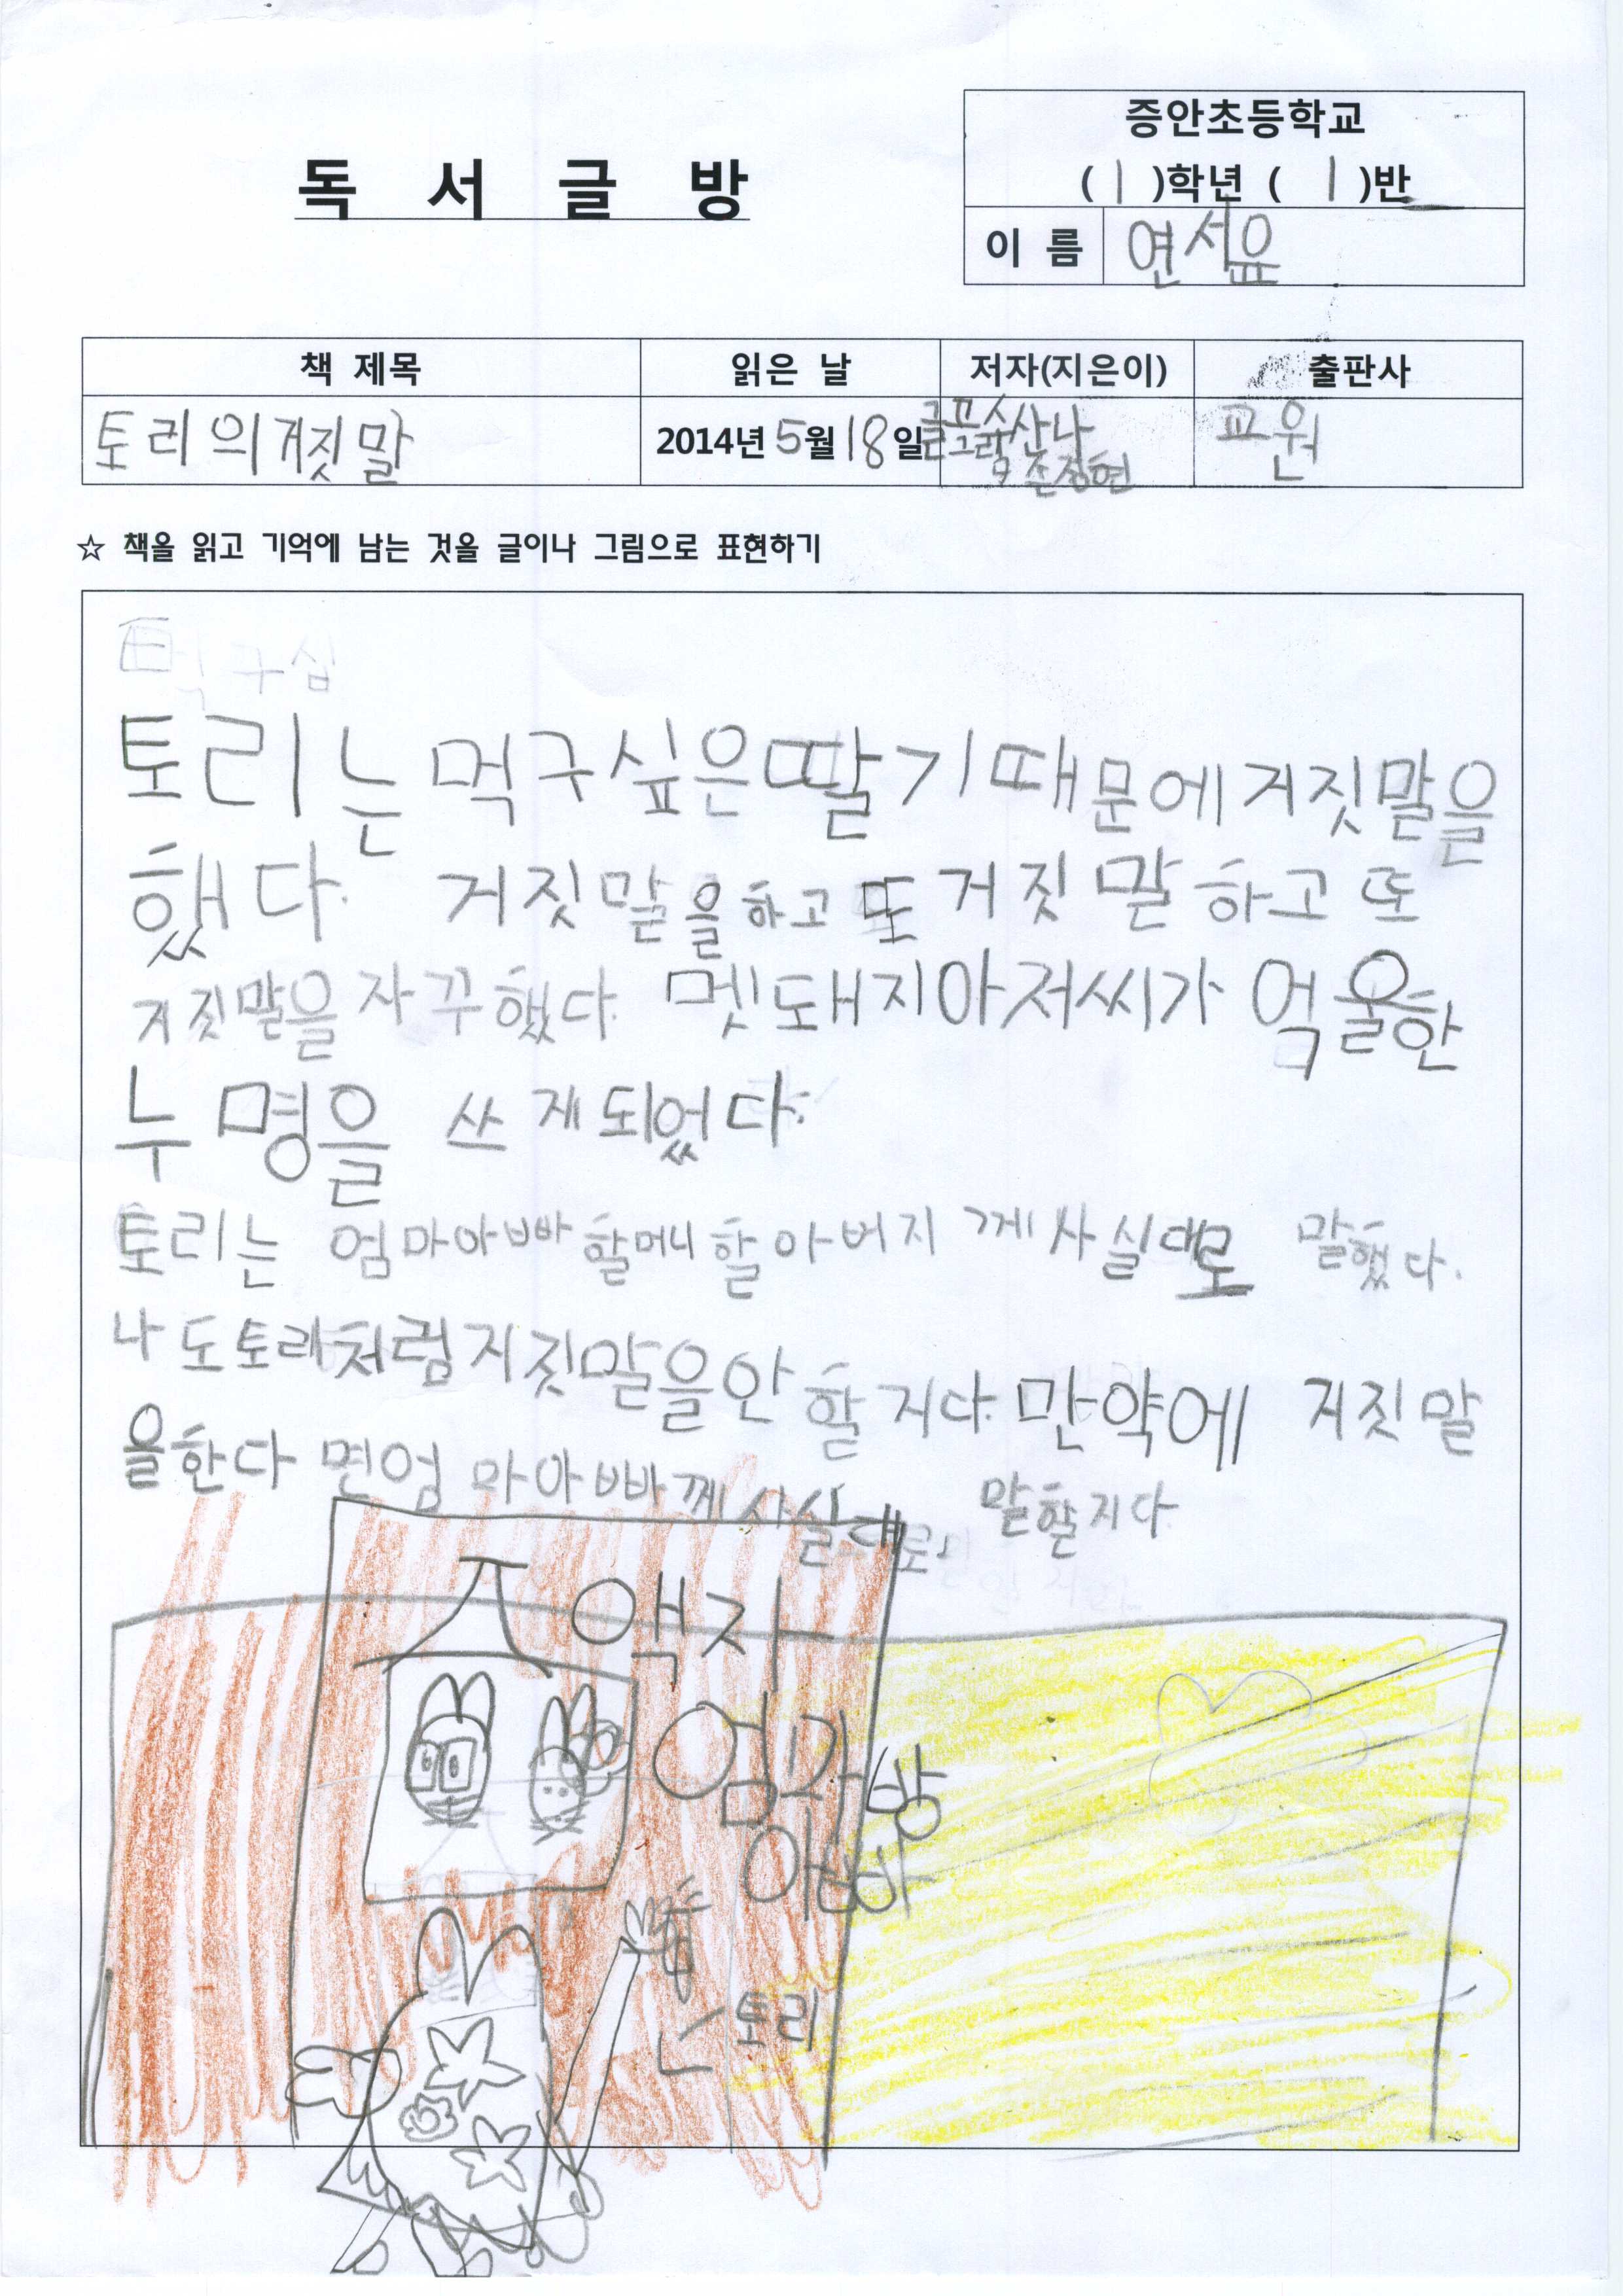 증안초등학교
독 서 글 방
( 1 )학년 ( 1 )반
이 름 연서윤
책 제목 읽은 날 저자(지은이) 출판사
토리의거짓말 2014년 5월 18일 교원
☆ 책을 읽고 기억에 남는 것을 글이나 그림으로 표현하기
토리는 먹구싶은딸기때문에거짓말을
했다. 거짓말을하고 또거짓말하고 또
거짓말을자꾸했다. 멧돼지아저씨가 억울한
누명을 쓰게되었다.
토리는 엄마아빠할머니할아버지 께사실대로 말했다.
나도토리처럼거짓말을안할지다 만약에 거짓말
을한다면엄마아빠께사실대로 말할지다
액자
엄마방
아빠
토리